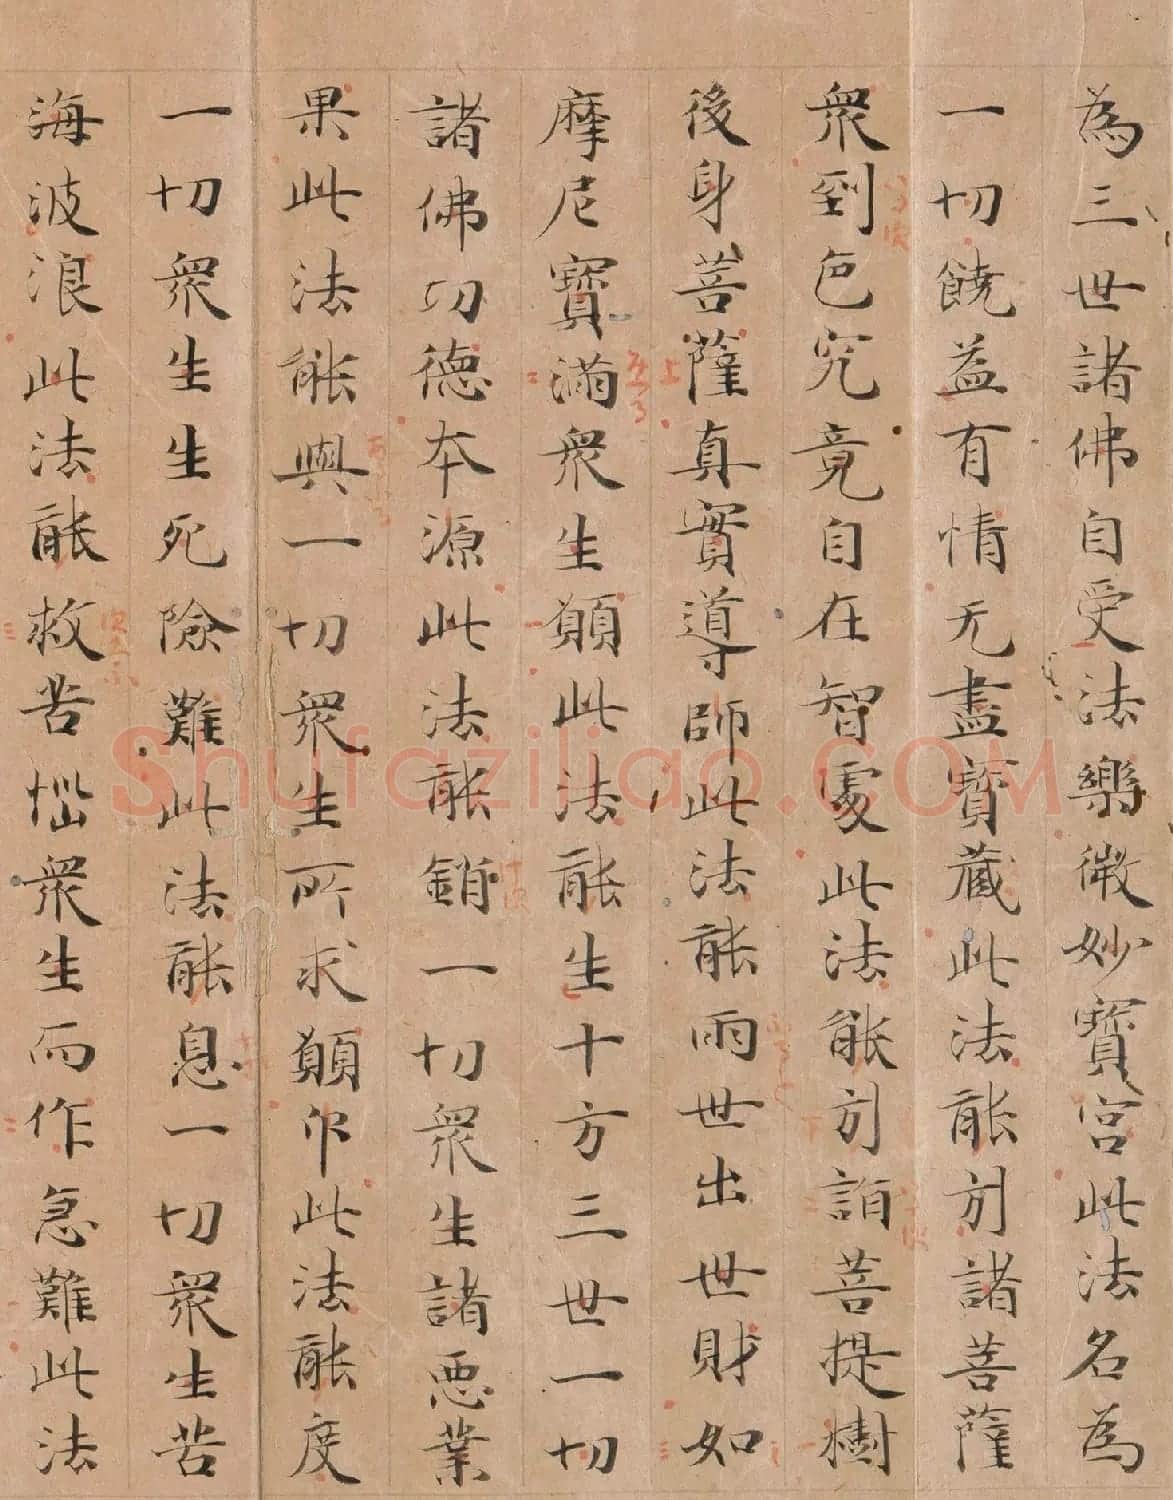 為三世諸佛自受法樂微妙寶宮此法名為
一切饒益有情无盡寶藏此法能引諸菩薩
眾到色究竟自在智處此法能引詣菩提樹
後身菩薩真實導師此法能雨世出世財如
摩尼寶滿眾生願此法能生十方三世一切
諸佛功德本源此法能銷一切眾生諸惡業
果此法能與一切眾生所求願印此法能度
一切眾生生死險難此法能息一切眾生苦
海波浪此法能救苦惱眾生而作急難此法
Shufaziliao.COM